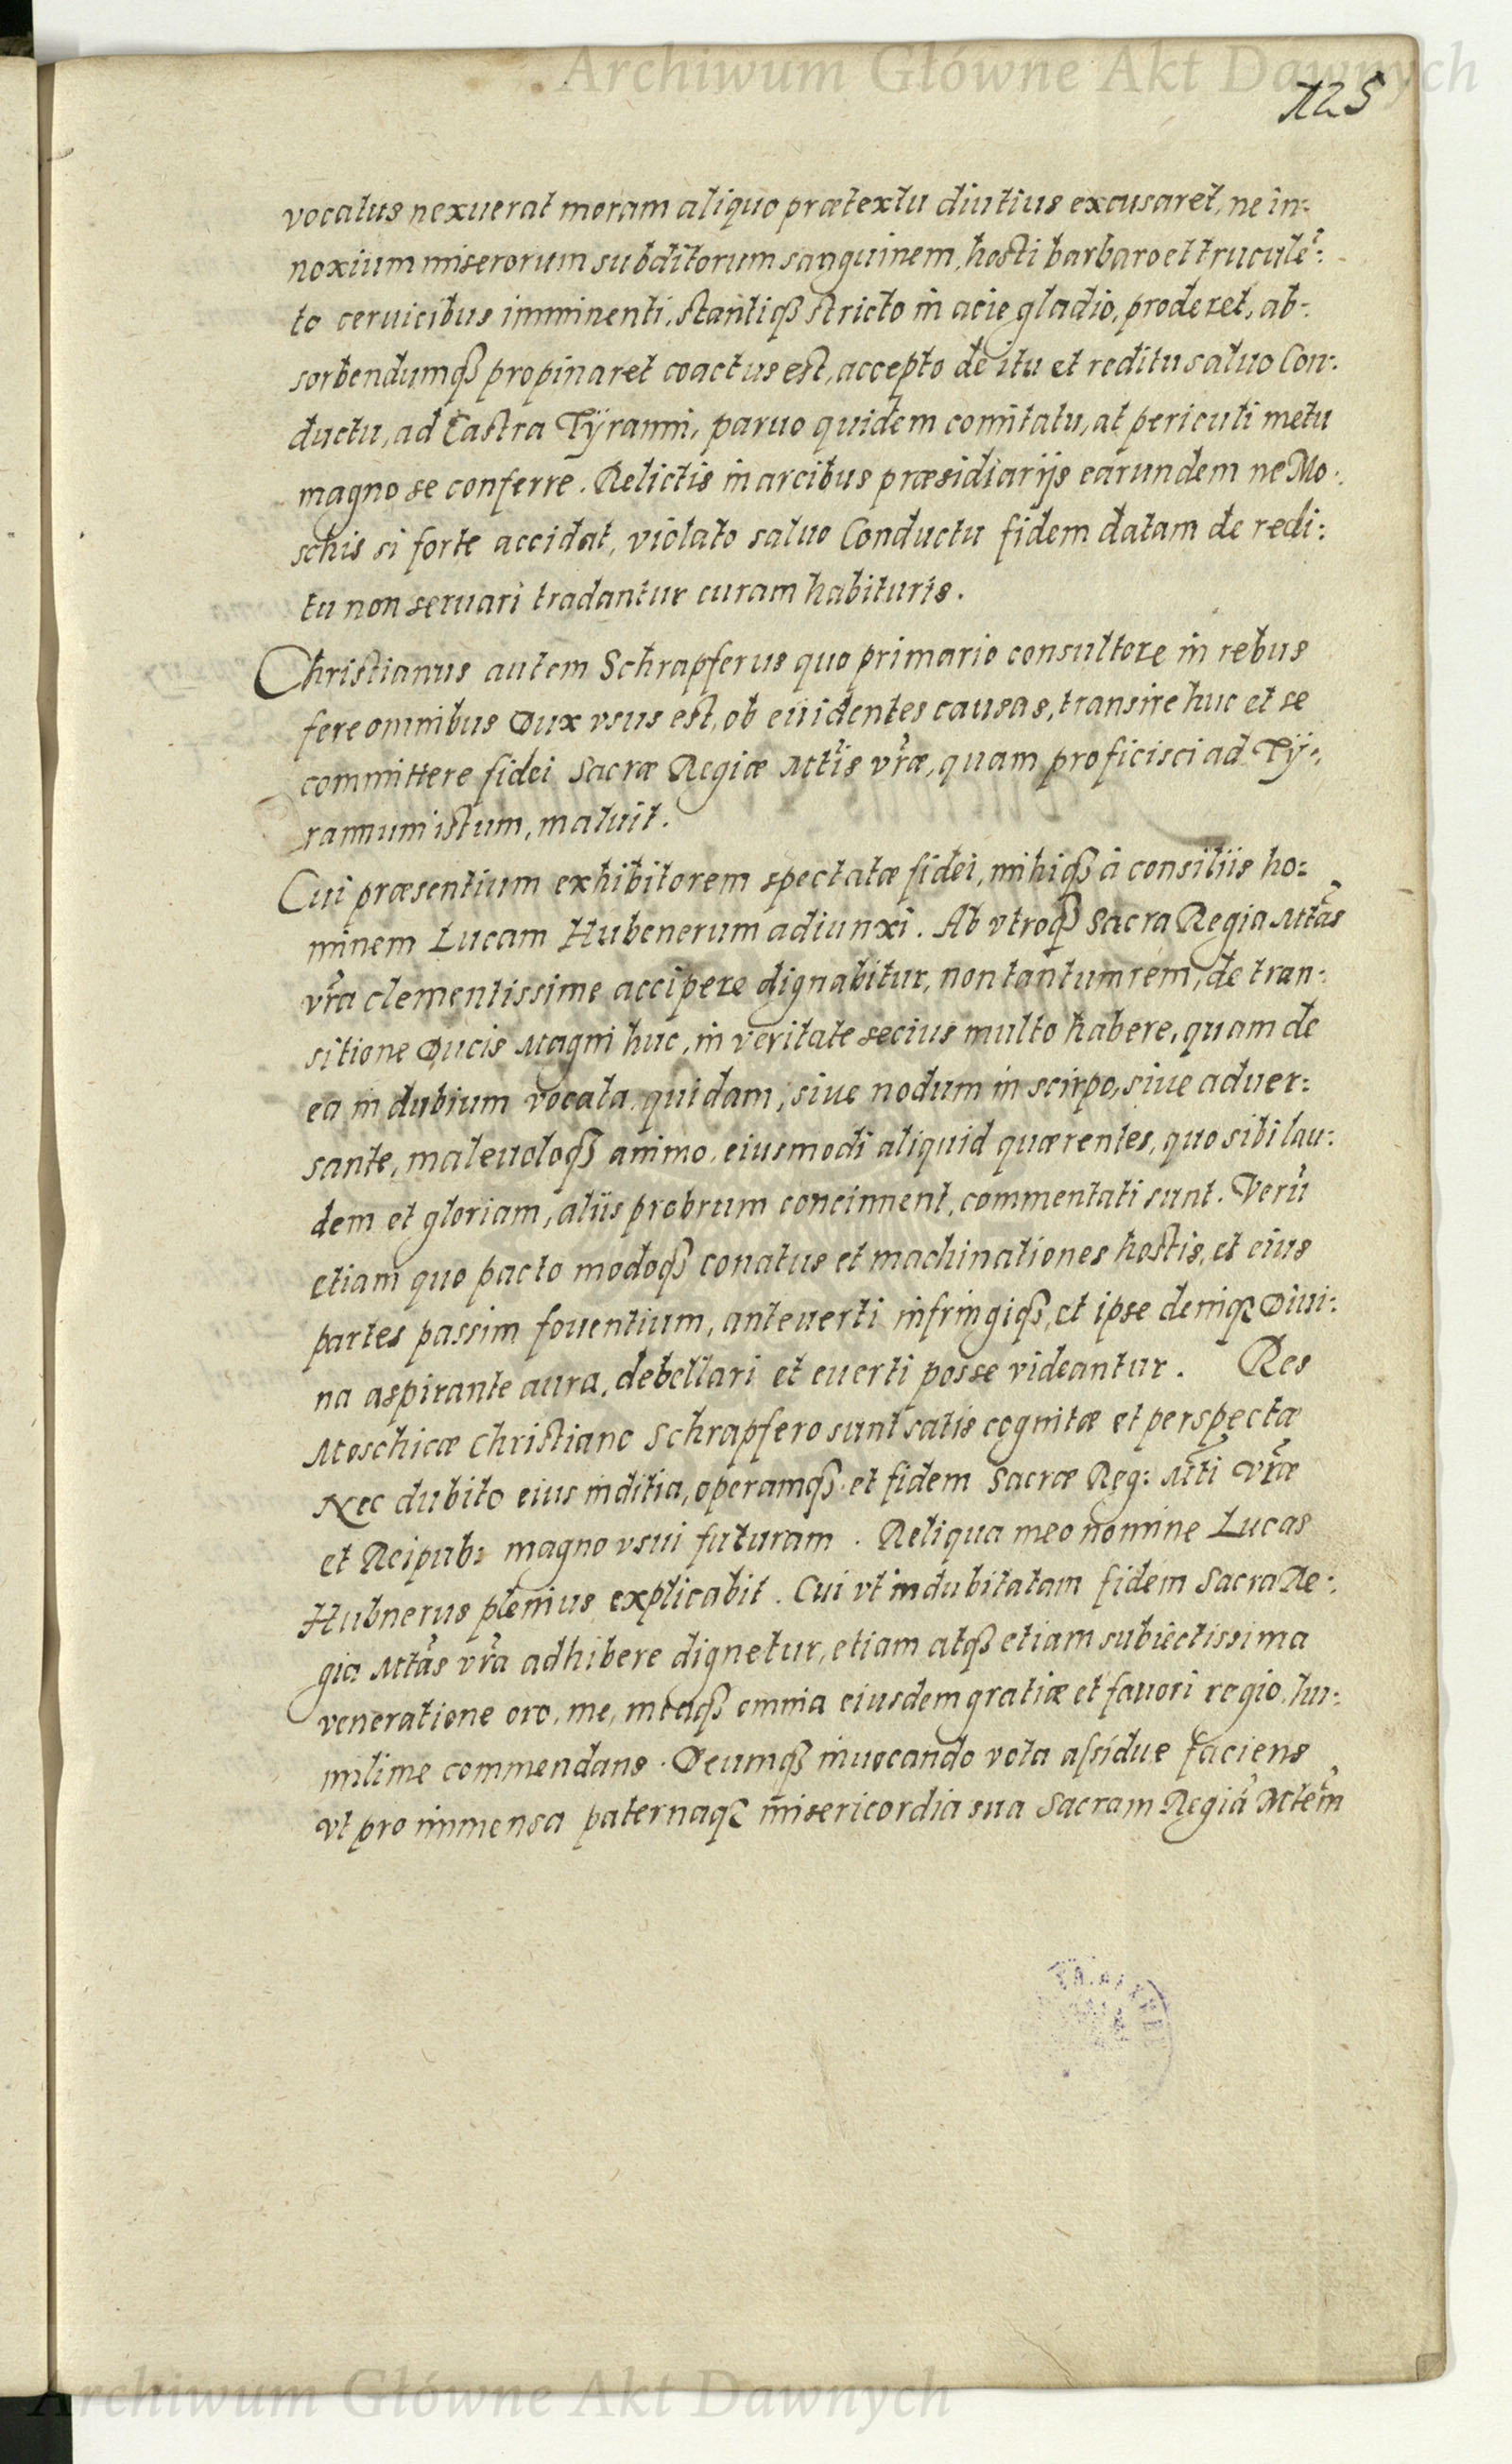 Archiwum Główne Akt Dawnych
125
vocatus nexuerat moram aliquo prætextu diutius excusaret, ne in:
noxium miserorum subditorum sanguinem, hosti barbaro et truculē:
to ceruicibus imminenti, stantiqꝫ stricto in acie gladio, proderet, ab:
sorbendumqꝫ propinaret coactus est, accepto de itu et reditu saluo Con:
ductu, ad Castra Tÿranni, paruo quidem comitatu, at periculi metu
magno se conferre. Relictis in arcibus præsidiarijs earundem ne Mo:
schis si forte accidat, violato saluo Conductu fidem datam de redi:
tu non seruari tradantur curam habituris.
Christianus autem Schrapferus quo primario consultore in rebus
fere omnibus Dux vsus est, ob euidentes causas, transire huc et se
committere fidei Sacræ Regiæ Mtis vræ, quam proficisci ad Tÿ:
rannum istum, maluit.
Cui præsentium exhibitorem spectatæ fidei, mihiqꝫ à consiliis ho:
minem Lucam Hubenerum adiunxi. Ab vtroqꝫ Sacra Regia Mtas
vra clementissime accipere dignabitur, non tantum rem, de tran:
sitione Ducis Magni huc, in veritate secius multo habere, quam de
ea in dubium vocata quidam, siue nodum in scirpo, siue aduer:
sante, maleuoloqꝫ animo, eiusmodi aliquid quærentes, quo sibi lau:
dem et gloriam, aliis probrum concinnent, commentati sunt. Verū
etiam quo pacto modoqꝫ conatus et machinationes hostis, et eius
partes passim fouentium, anteuerti infringiqꝫ, et ipse deniqꝫ Diui:
na aspirante aura, debellari et euerti posse videantur. Res
Moschicæ Christiano Schrapfero sunt satis cognitæ et perspectæ
Nec dubito eius inditia, operamqꝫ et fidem Sacræ Reg: Mti vræ
et Reipub: magno vsui futuram. Reliqua meo nomine Lucas
Hubnerus plenius explicabit. Cui vt indubitatam fidem Sacra Re:
gia Mtas vra adhibere dignetur, etiam atqꝫ etiam subiectissima
veneratione oro, me, meaqꝫ omnia eiusdem gratiæ et fauori regio, hu:
milime commendans. Deumqꝫ inuocando vota assidue faciens
vt pro immensa paternaqꝫ misericordia sua Sacram Regiā Mtem
Archiwum Główne Akt Dawnych